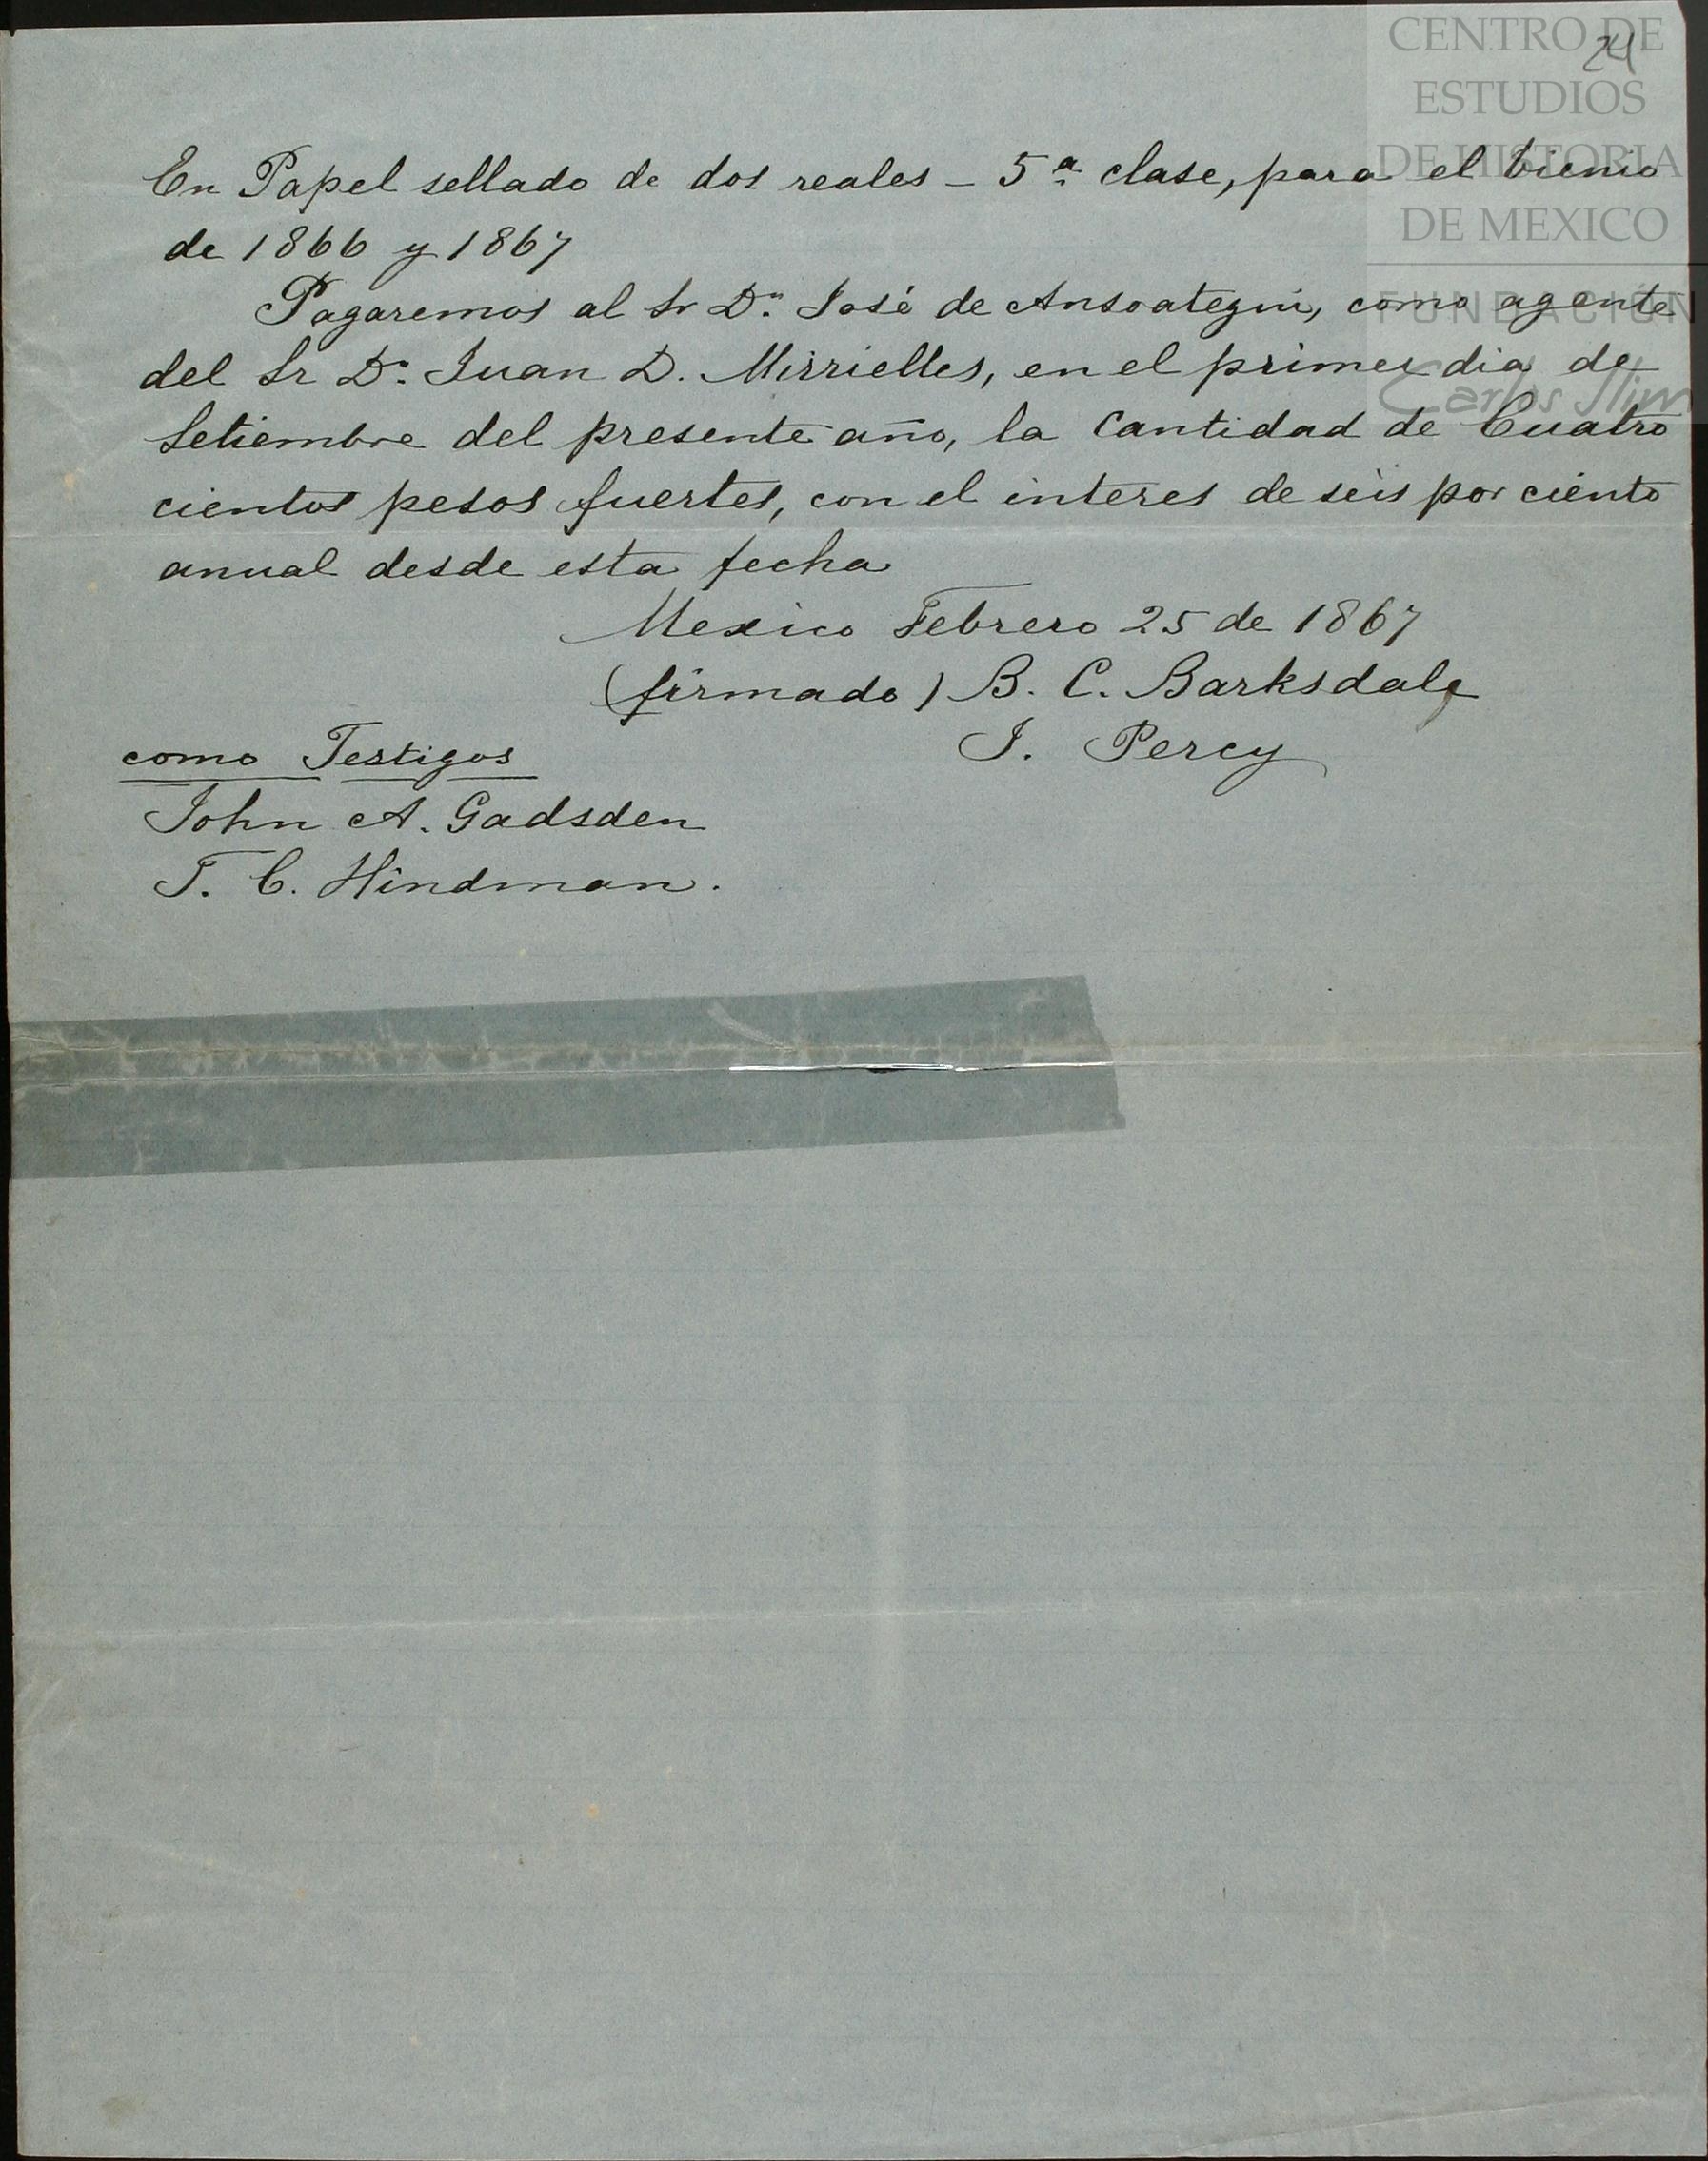 24
CENTRO DE
ESTUDIOS
DE HISTORIA
DE MEXICO
FUNDACIÓN
Carlos Slim
En Papel sellado de dos reales – 5ª clase, para el bienio
de 1866 y 1867
Pagaremos al Sr Dn. José de Ansoategui, como agente
del Sr Dn. Juan D. Mirrielles, en el primer dia de
Setiembre del presente año, la Cantidad de Cuatro
cientos pesos fuertes, con el interes de seis por ciento
anual desde esta fecha
Mexico Febrero 25 de 1867
(firmado) B. C. Barksdale
J. Percy
como Testigos
John A. Gadsden
T. C. Hindman.